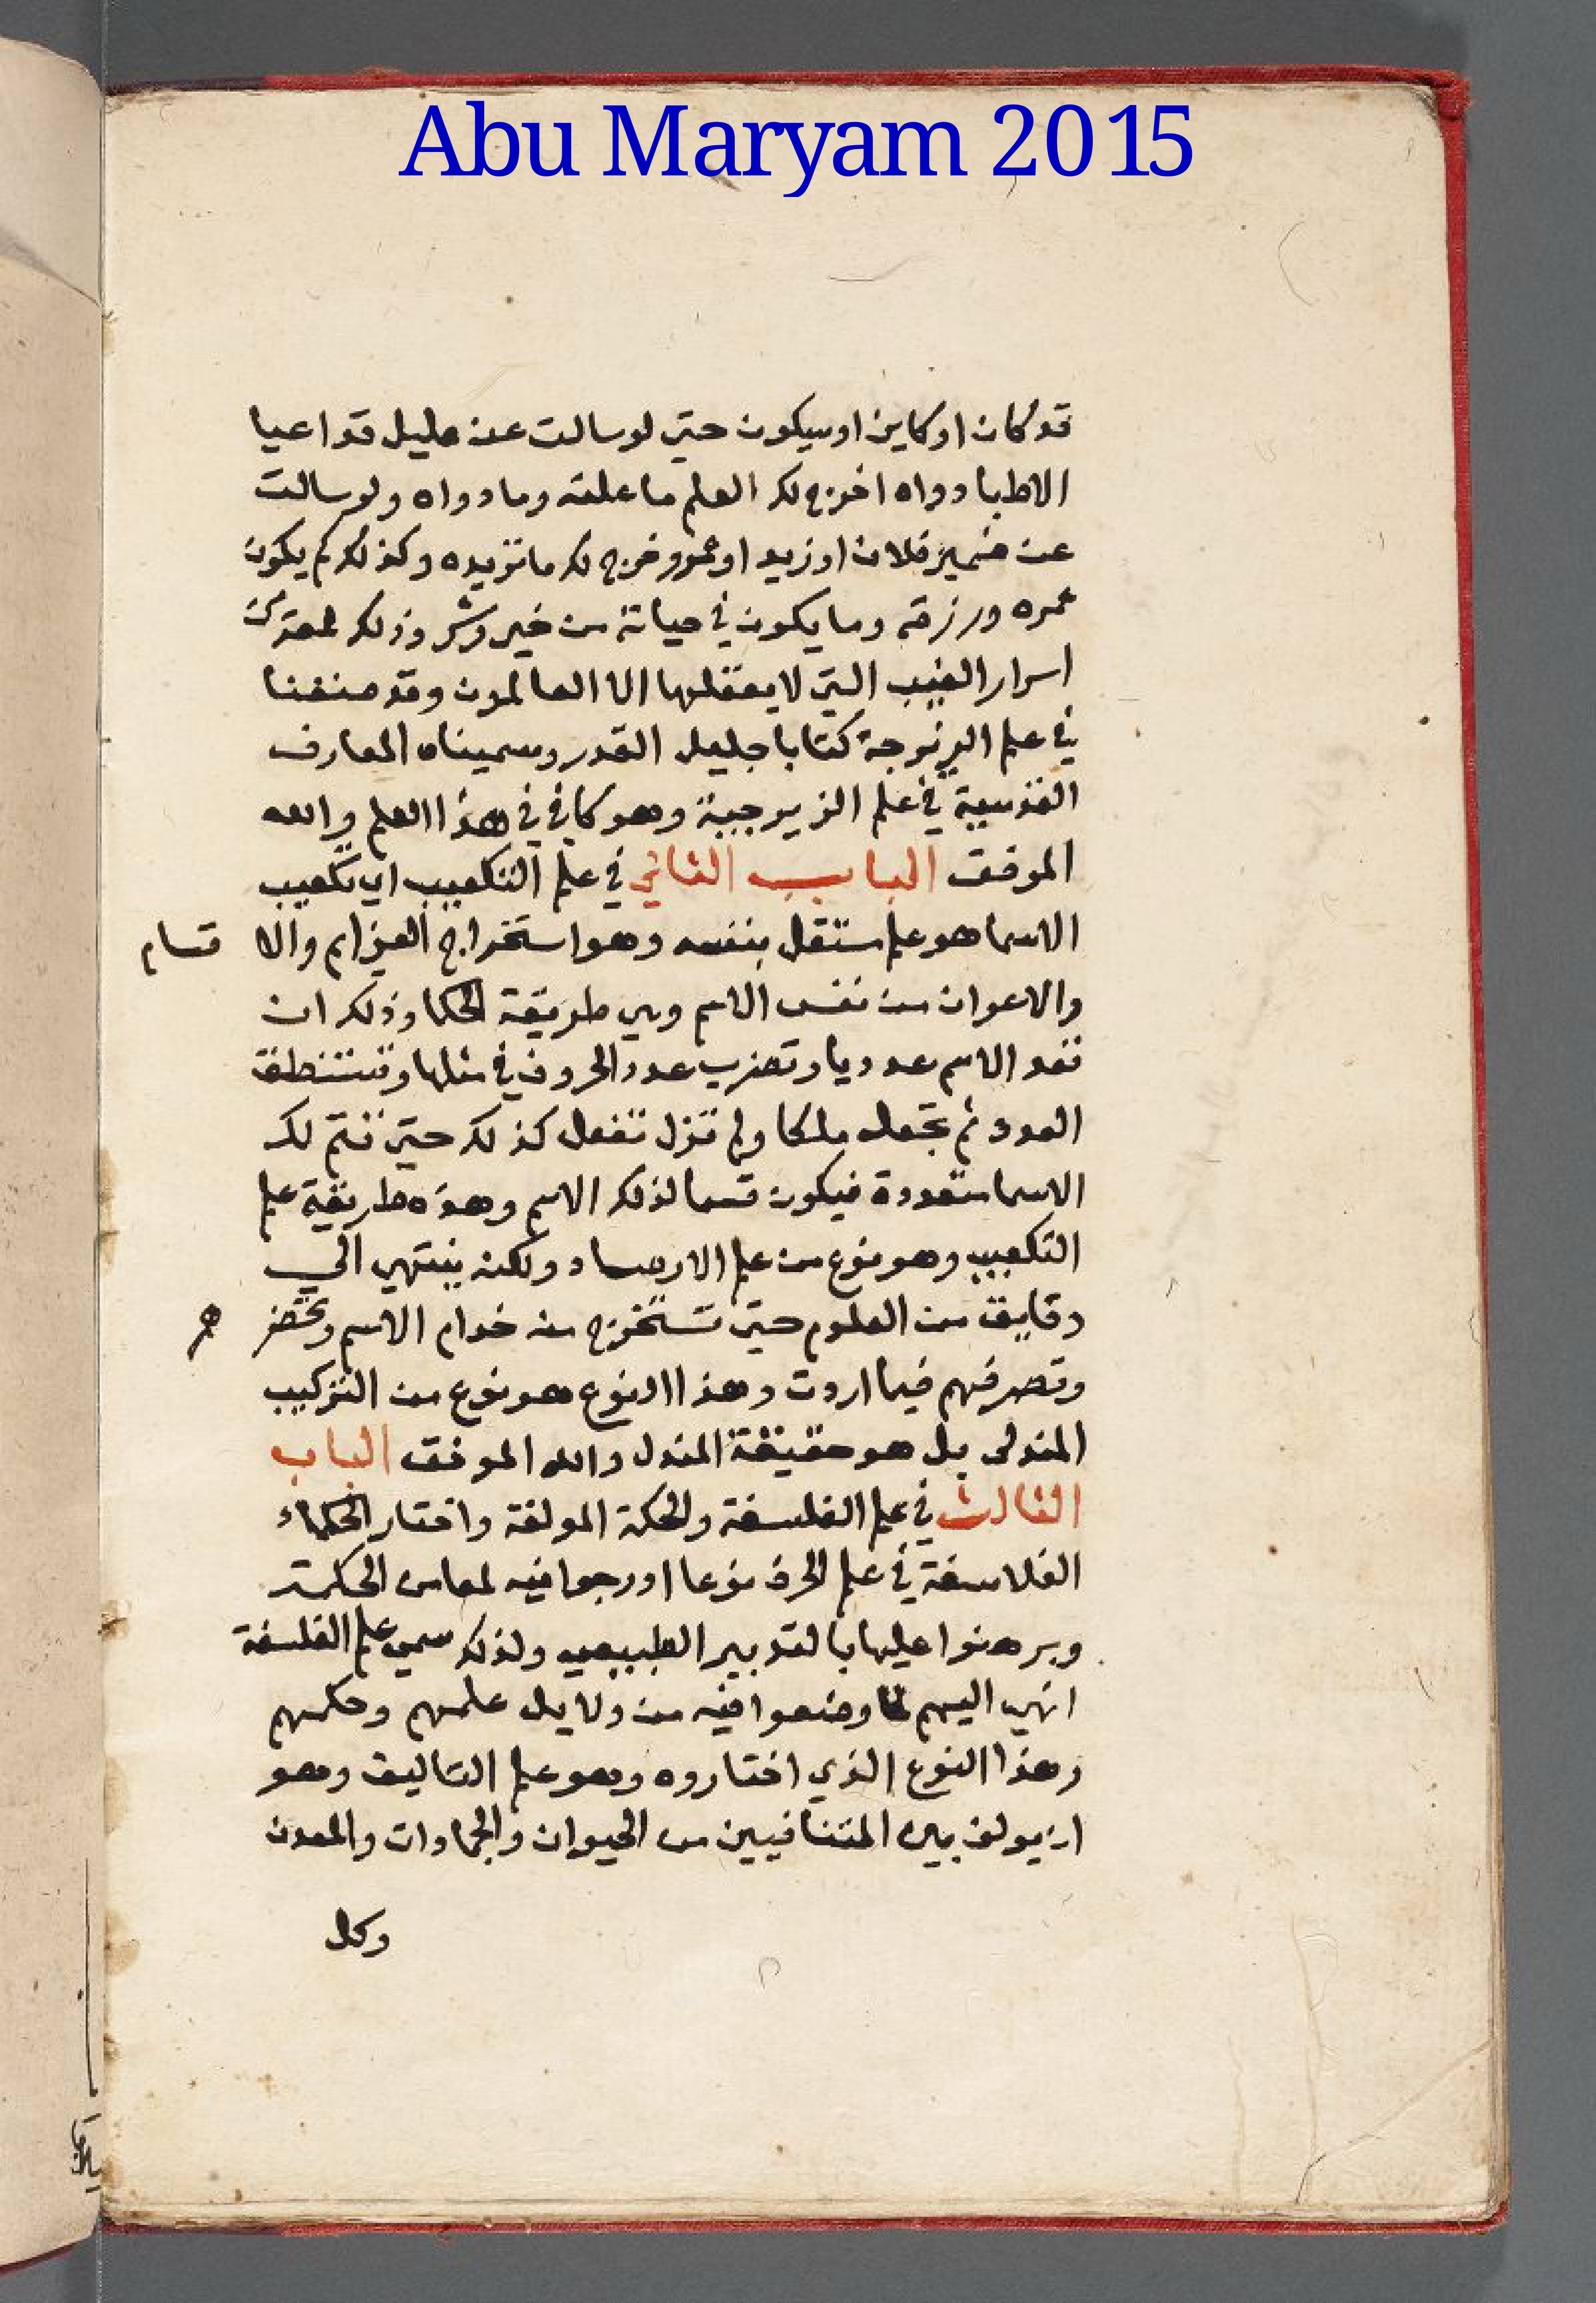 Abu Maryam 2015
قد كان او كاين او سيكون حتي لو سالت عن عليل قد اعيا
الاطبا دواه اخرج لك العلم ما علته وما دواه ولو سالت
عن ضمير فلان او زيد او عمرو خرج لك ما تريده وكذلك كم يكون
عمره ورزقه وما يكون في حياته من خير وشر وذلك لمعة من
اسرار الغيب التي لا يعقلها الا العالمون وقد صنفنا
في علم الزيرجة كتابا جليل القدر وسميناه المعارف
القدسية في علم الزيرجية وهو كافي في هذا العلم والله
الموفق الباب الثاني في علم التكعيب اي تكعيب
الاسما هو علم مستقل بنفسه وهو استخراج العزايم والاقسام
والاعوان من نفس الاسم وهي طريقة الحكما وذلك ان
تعد الاسم عدديا وتضرب عدد الحروف في مثلها وتستنطق
العدد ثم تجعله ملكا ولم تزل تفعل كذلك حتي تتم لك
الاسما متعددة فيكون قسما لذلك الاسم وهذه طريقة علم
التكعيب وهو نوع من علم الارصاد ولكنه ينتهي الي
دقايق من العلوم حتي تستخرج منه خدام الاسم وتحضرهم
وتصرفهم فيما اردت وهذا النوع هو نوع من التركيب
المندلى بل هو حقيقة المندل والله الموفق الباب
الثالث في علم الفلسفة والحكمة المولفة واختار الحكماء
الفلاسفة في علم الحرف نوعا ادرجوا فيه لمعا من الحكمة
وبرهنوا عليها بالتدبير الطبيعي ولذلك سمي علم الفلسفة
انهي اليهم لما وضعوا فيه من دلايل علمهم وحكمهم
وهذا النوع الذي اختاروه وهو علم التاليف وهو
ان يولف بين المتنافيين من الحيوان والجمادات والمعدن
وكل